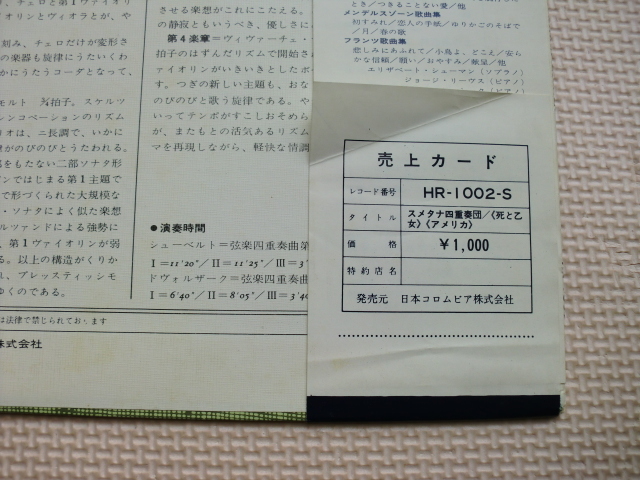 、チェロと第1ヴァイオリ
ンとヴィオラとが、や
刻み、チェロだけが変形さ
の楽器も旋律にうたいくわ
かにうたうコーダとなって、
モルト ¾拍子。スケルツ
シンコペーションのリズム
リオは、ニ長調で、いかに
のびのびとうたわれる。
をもたない二部ソナタ形
ンではじまる第1主題で
で形づくられた大規模な
・ソナタによく似た楽想
ルツァンドによる強勢に
、第1ヴァイオリンが弱
る。以上の構造がくりか
れ、プレスティッシモ
ゆくのである。
は法律で禁じられております
株式会社
させる楽想がこれにこたえる。
の静寂ともいうべき、優しさに
第4楽章=ヴィヴァーチェ・
拍子のはずんだリズムで開始さ
ァイオリンがいきいきとしたボ
す。つぎの新しい主題も、おな
のびのびと歌う旋律である。や
いってテンポがすこしおそめら
が、またもとの活気あるリズム
マを再現しながら、軽快な情調
●演奏時間
シューベルト=弦楽四重奏曲第
I=11'20"/II=11'25"/III=3'
ドヴォルザーク=弦楽四重奏曲
I=6'40"/II=8'05"/III=3'4
とき/つきることない愛/他
メンデルスゾーン歌曲集
初すみれ/恋人の手紙/ゆりかごのそばで
/月/春の歌
フランツ歌曲集
悲しみにあふれて/小鳥よ、どこえ/安ら
かな信頼/願い/おやすみ/献呈/他
エリザベート・シューマン(ソプラノ)
ジョージ・リーヴス(ピアノ)
売上カード
レコード番号 HR-1002-S
タイトル スメタナ四重奏団/《死と乙
女》《アメリカ》
価格 ¥1,000
特約店名
発売元 日本コロムビア株式会社